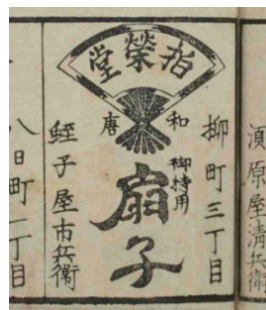 須原屋清兵衛
柳町三丁目
指榮堂
和
唐
御持用
扇子
蛭子屋市兵衛
八日町一丁目